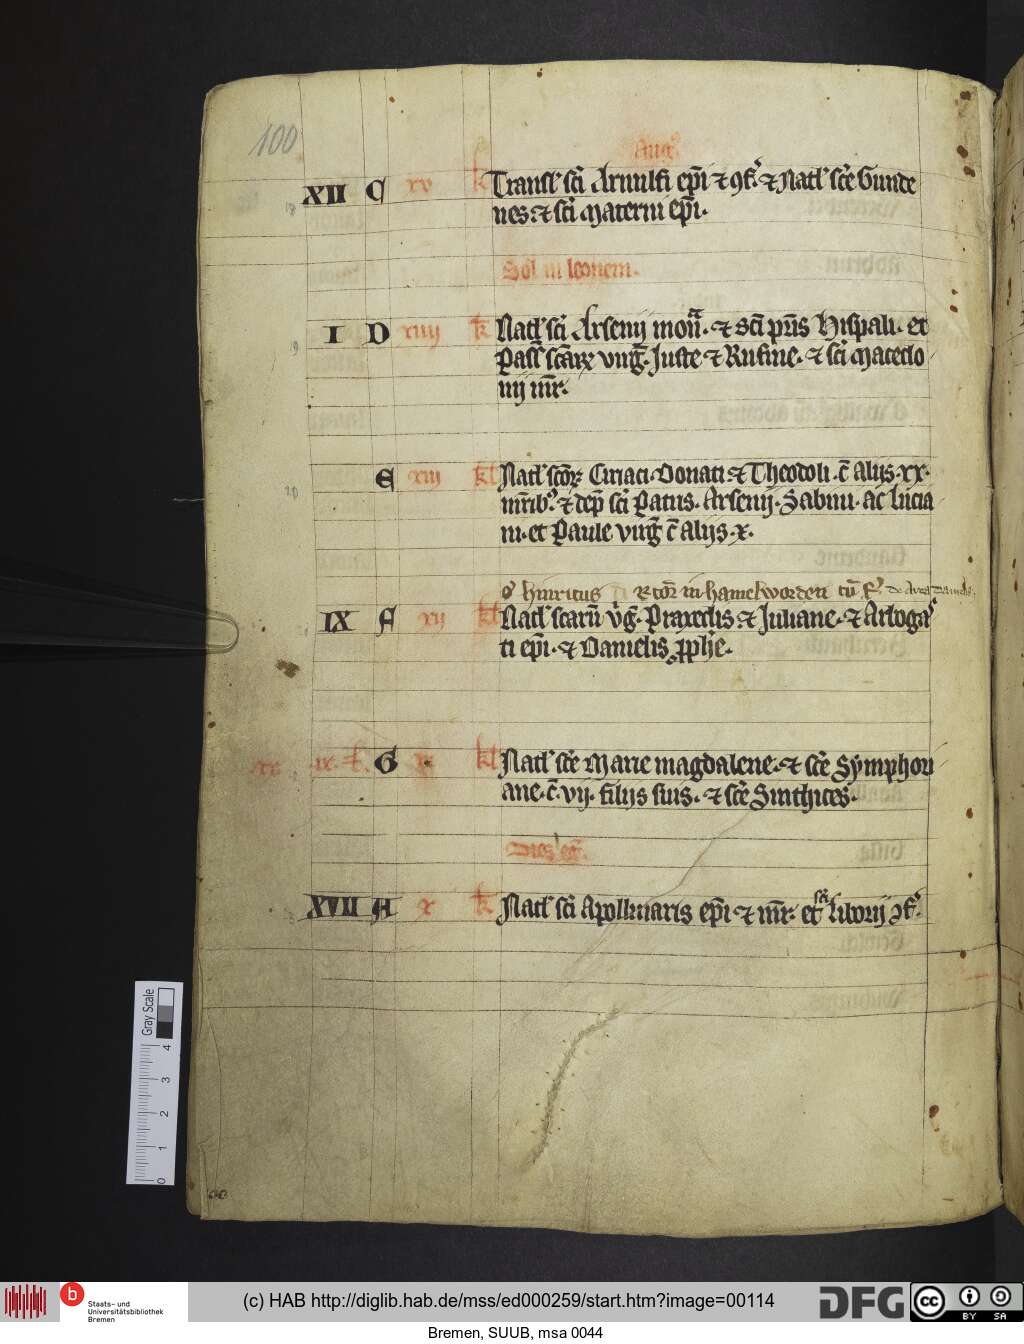 100
Aug.
XII C xv k Transl' sci Arnulfi epi ⁊ 9f. ⁊ Natl' sce Gunde
nes. ⁊ sci Materni epi.
18
Sol in leonem.
I D xiiii k Natl' sci Arsenij mon. ⁊ sci pris Hispali. et
19
Pass' scarꝝ virg. Juste ⁊ Rufine. ⁊ sci Macedo
nij mr.
E xiii kl Natl' scorꝝ Ciriaci. Donati. ⁊ Theodoli. c alijs. xx.
20
mrib9. ⁊ dep sci Patris. Arsenij. Sabini. ac Lucia
ni. et Paule virg c alijs. x.
o hinricus Rector in hamelworden cu
IX F xii kl Natl' scaru vg. Praxedis ⁊ Juliane. ⁊ Arboga
sti epi. ⁊ Danielis pphe.
G xi kl Natl' sce Marie magdalene. ⁊ sce Symphori
ane. c. vij. filijs suis. ⁊ sce Sinthices.
Dies eg.
XVII A x k Natl' sci Apollinaris epi ⁊ mr. et sci Liborij 9f.
Gray Scale
0 1 2 3 4
b Staats- und
Universitätsbibliothek
Bremen
(c) HAB http://diglib.hab.de/mss/ed000259/start.htm?image=00114
DFG
cc BY SA
Bremen, SUUB, msa 0044